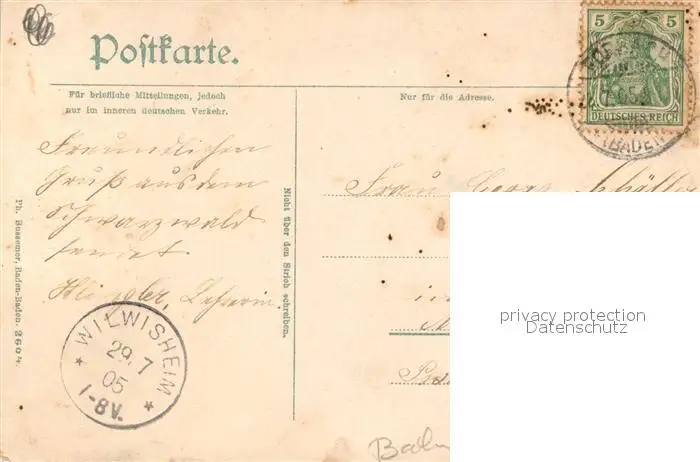 Postkarte.
Für briefliche Mitteilungen, jedoch
nur im inneren deutschen Verkehr.
Nur für die Adresse.
5 5
DEUTSCHES REICH
(BADEN)
Freundlichen
Gruß aus dem
Schwarzwald
sendet
Lehrerin
Frau Georg
Nicht über den Strich schreiben.
Ph. Bussemer, Baden-Baden. 3604.
* WILWISHEIM *
29. 7
05
1-8V.
privacy protection
Datenschutz